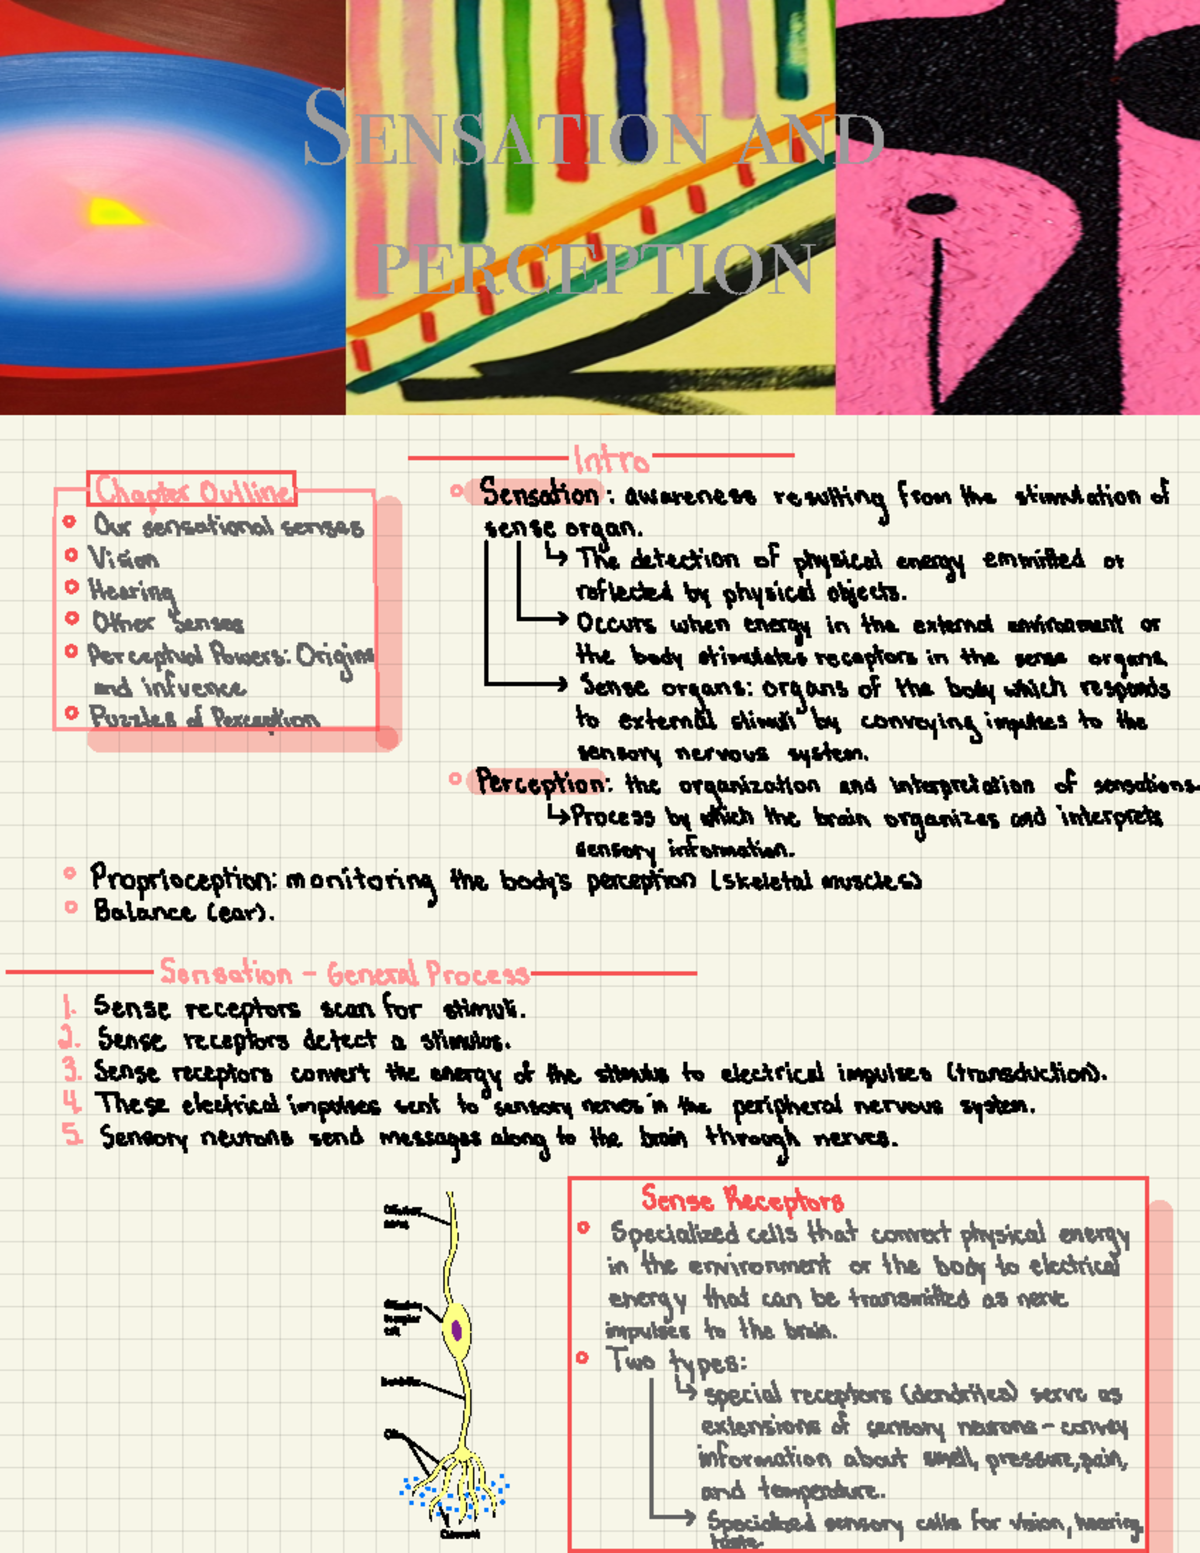 SENSATION AND
PERCEPTION
Intro
Chapter Outline
Our sensational senses
Vision
Hearing
Other Senses
Perceptual Powers: Origins
and infvence
Puzzles of Perception
Sensation: awareness resulting from the stimulation of
sense organ.
The detection of physical energy emmitted or
reflected by physical objects.
Occurs when energy in the external environment or
the body stimulates receptors in the sense organs
Sense organs: organs of the body which responds
to external stimuli by conveying impulses to the
sensory nervous system.
Perception: the organization and interpretation of sensations.
Process by which the brain organizes and interprets
sensory information.
Proprioception: monitoring the body's perception (skeletal muscles)
Balance (ear).
Sensation - General Process
1. Sense receptors scan for stimuli.
2. Sense receptors detect a stimulus.
3. Sense receptors convert the energy of the stimulus to electrical impulses (transduction).
4. These electrical impulses sent to sensory nerves in the peripheral nervous system.
5. Sensory neurons send messages along to the brain through nerves.
Olfactory
nerve
Olfactory
Receptor
Cell
Dendrite
Cilia
Chemical
Sense Receptors
Specialized cells that convert physical energy
in the environment or the body to electrical
energy that can be transmitted as nerve
impulses to the brain.
Two types:
special receptors (dendrites) serve as
extensions of sensory neurons - convey
information about smell, pressure, pain,
and temperature.
Specialized sensory cells for vision, hearing,
taste.